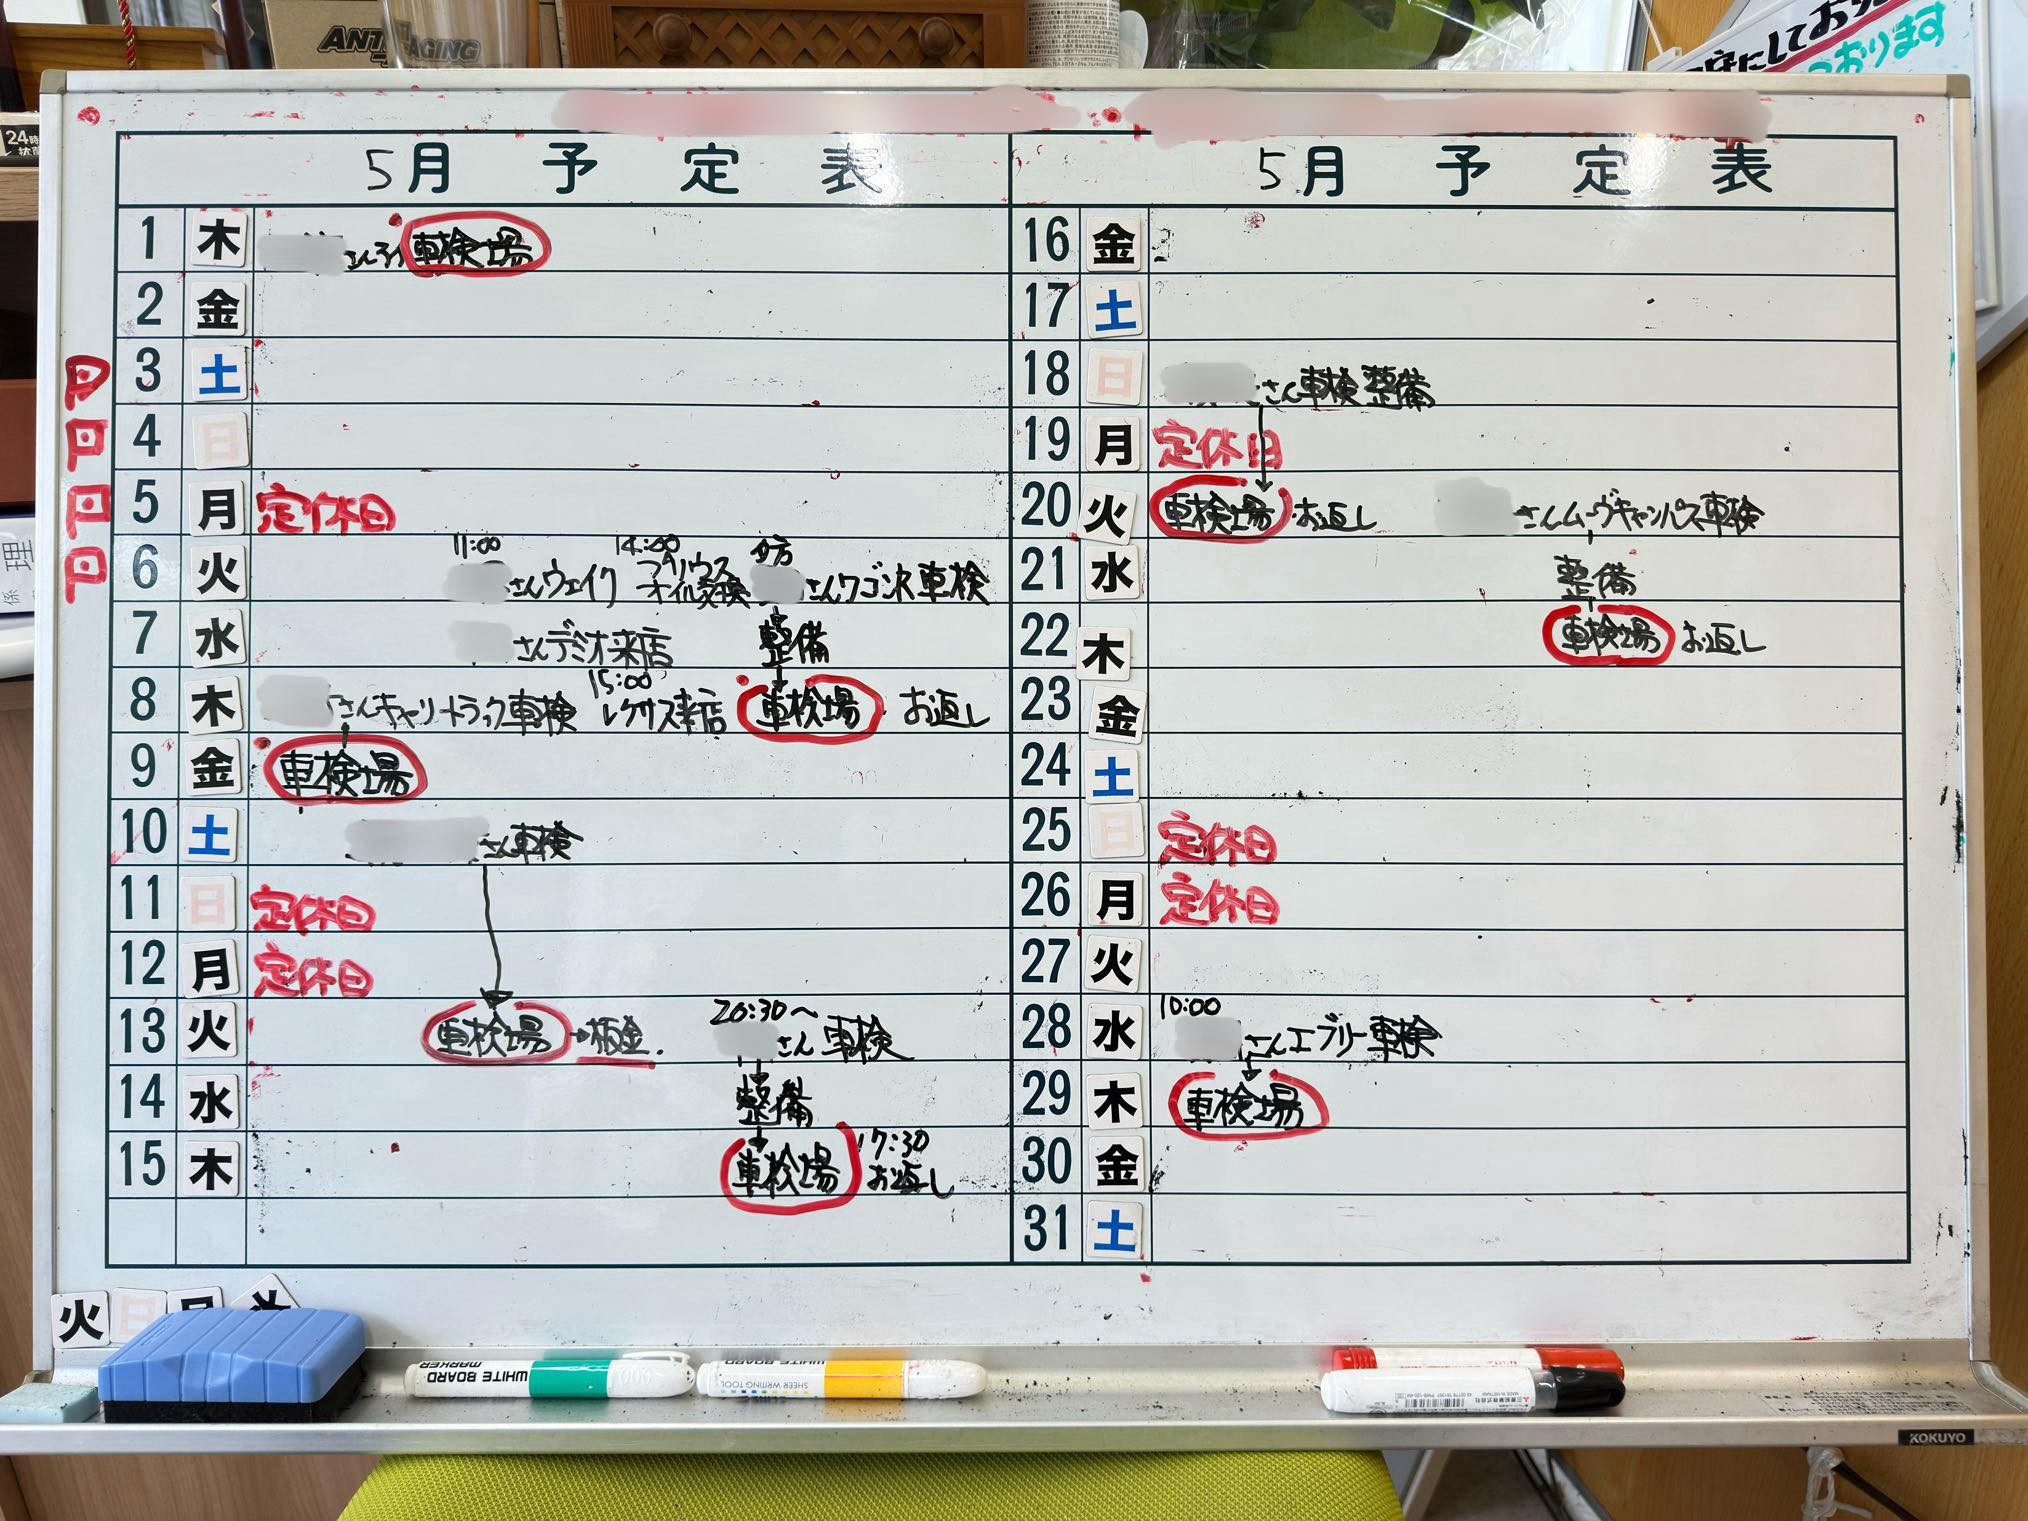 ANTI-AGING
24時
ております
5月 予定表
1 木 さん 車検場
2 金
3 土
4 日
5 月 定休日
11:00 14:00 夕方
6 火 さんウェイク プリウス オイル交換 さんワゴンR車検
7 水 さんデミオ来店 整備
15:00
8 木 さんキャリートラック車検 レクサス来店 車検場 お返し
9 金 車検場
10 土 さん車検
11 日 定休日
12 月 定休日
20:30〜
13 火 車検場 → 板金. さん 車検
14 水 整備
17:30
15 木 車検場 お返し
5月 予定表
16 金
17 土
18 日 さん車検 整備
19 月 定休日
20 火 車検場 お返し さんムーヴキャンバス車検
21 水 整備
22 木 車検場 お返し
23 金
24 土
25 日 定休日
26 月 定休日
27 火
10:00
28 水 さんエブリー車検
29 木 車検場
30 金
31 土
理
係
火 日 月
WHITE BOARD
MARKER
WHITE BOARD
SHEER WRITING TOOL
KOKUYO